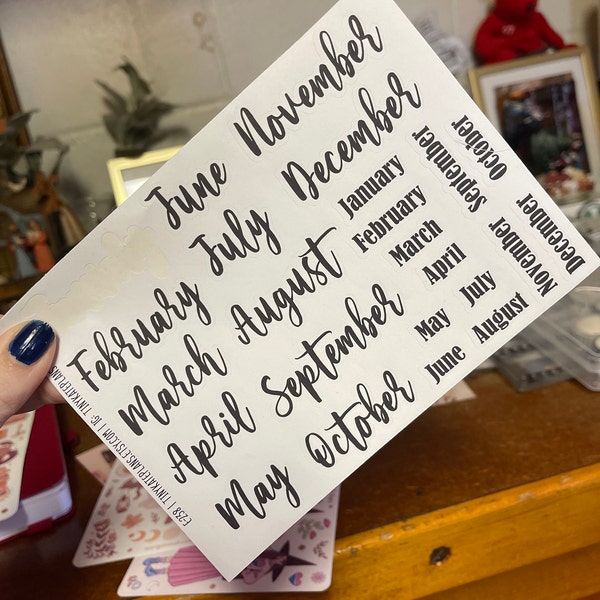 February
March
April
May
June
July
August
September
October
November
December
January
February
March
April
May
June
July
August
September
October
November
December
E-258 | TINYKATEPLANS.ETSY.COM | IG- TINYKATEPLANS